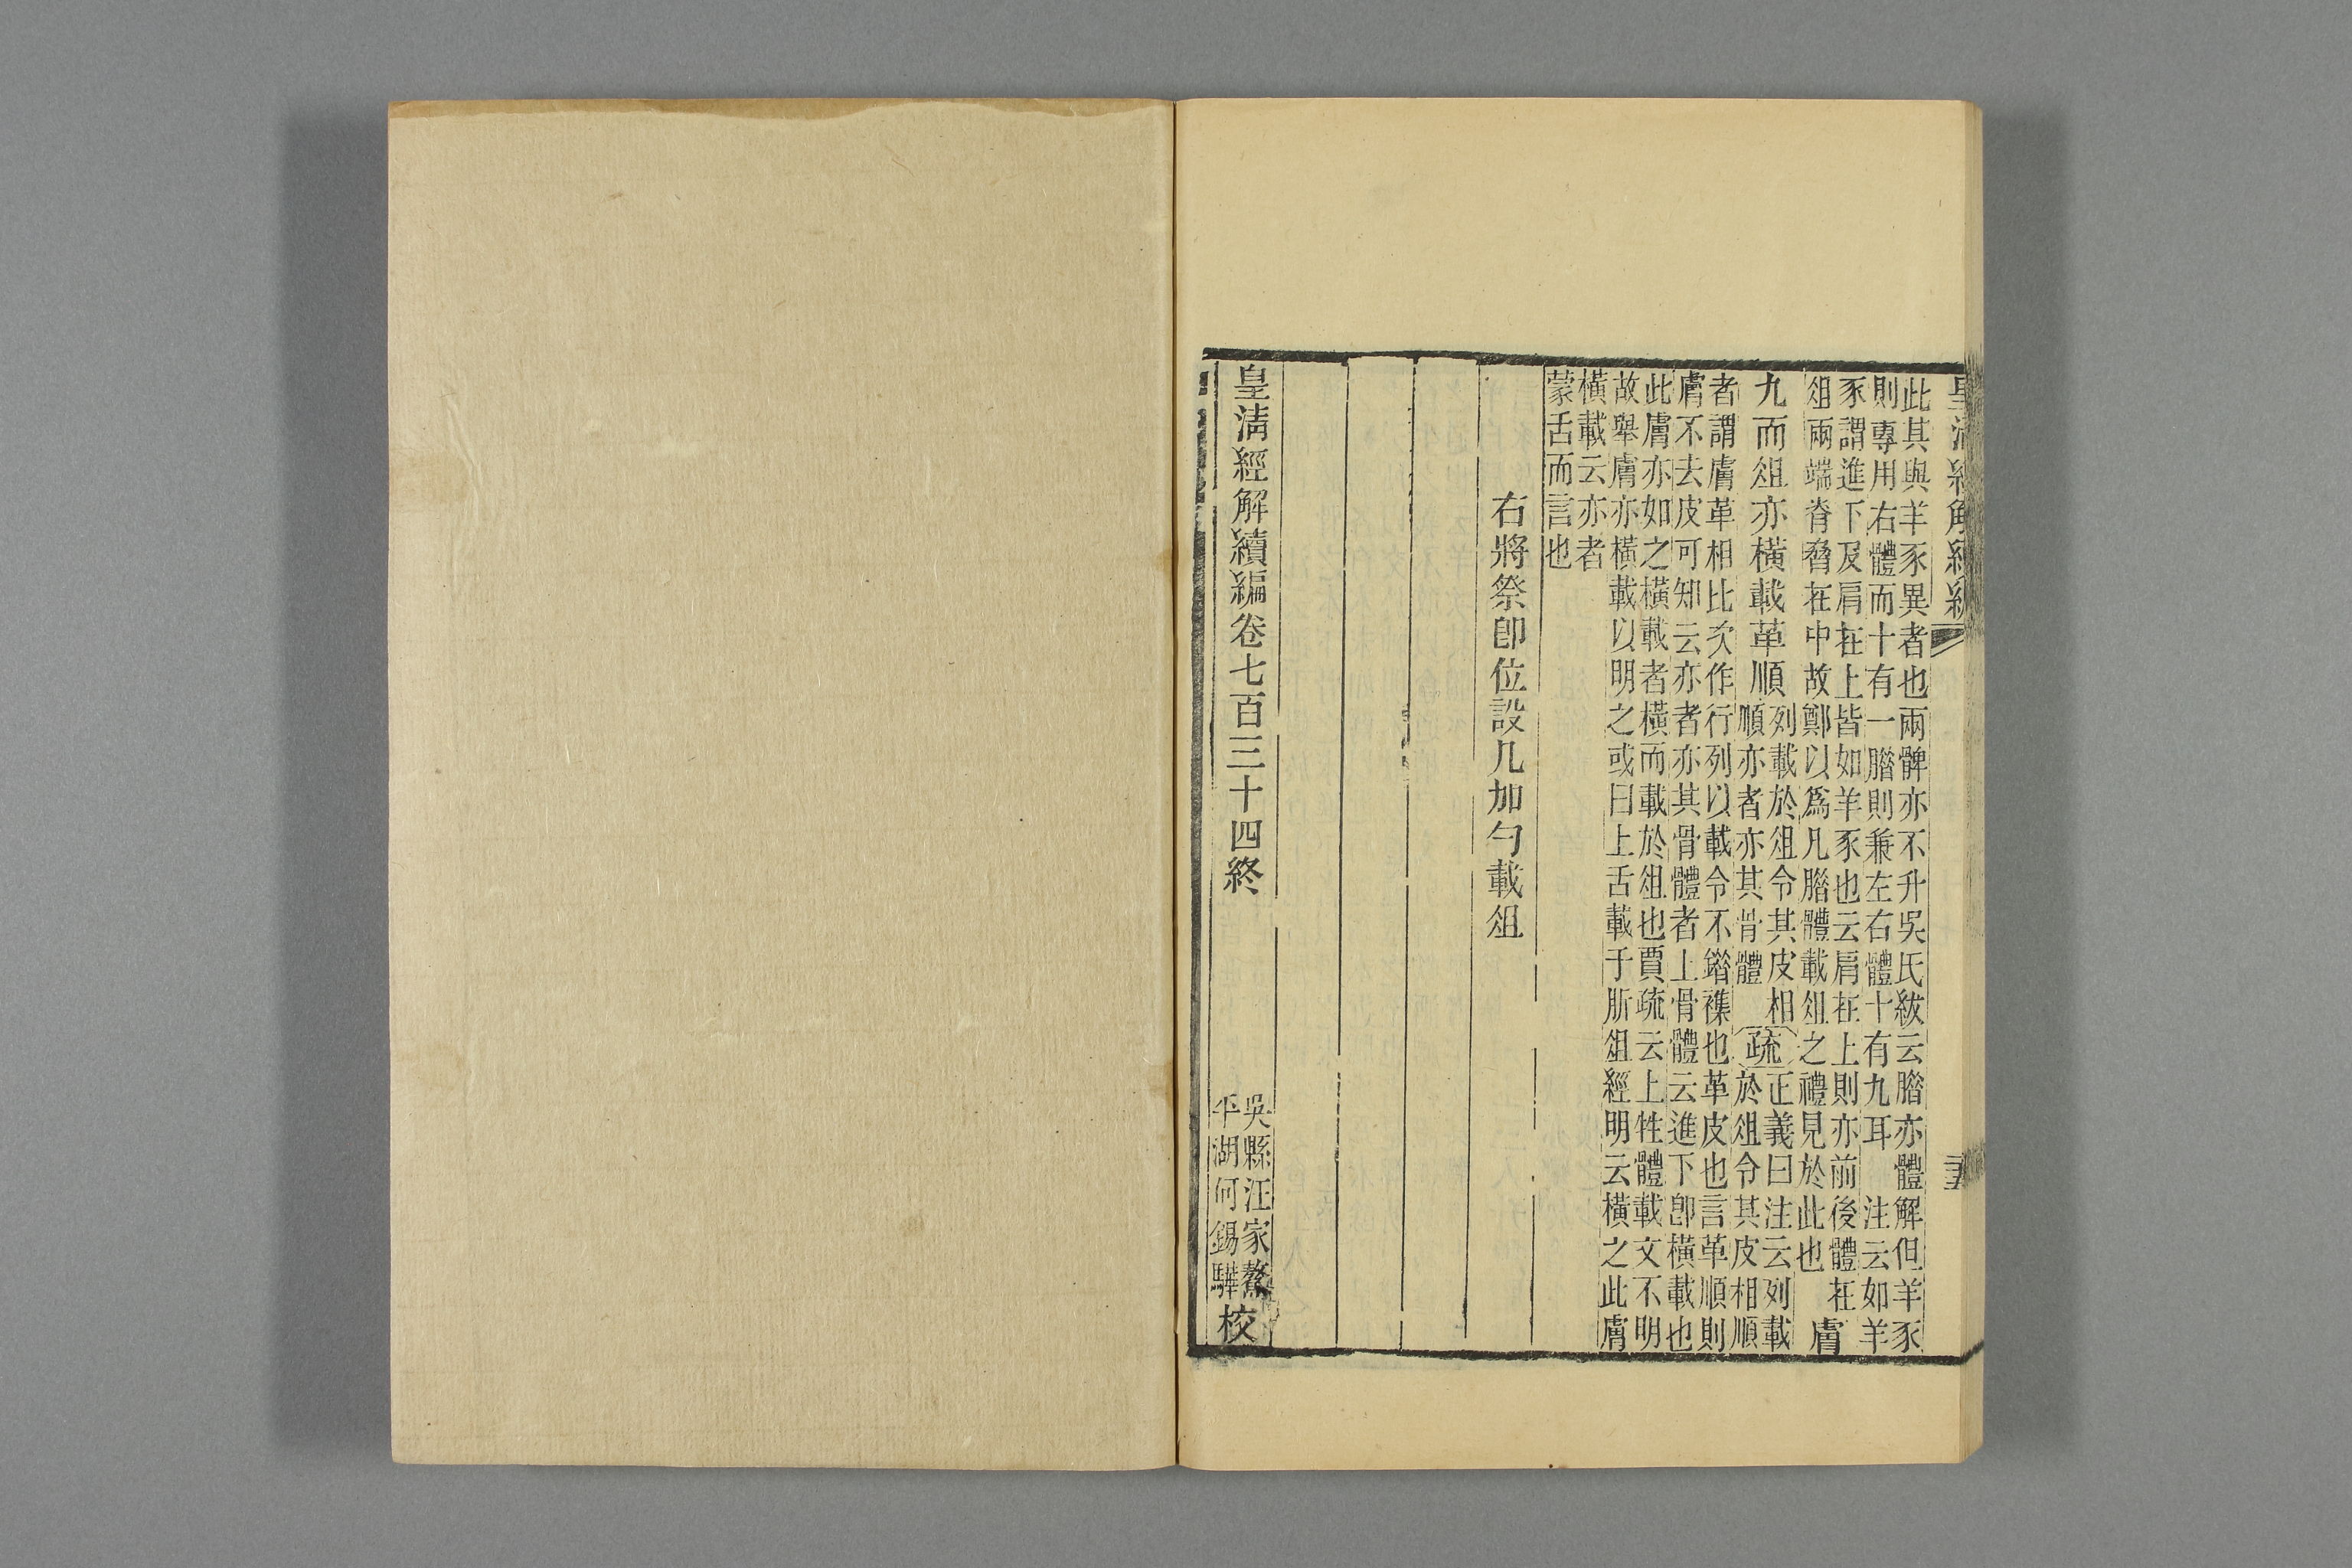 皇清經解續編
此其與羊豕異者也兩髀亦不升吳氏紱云腊亦體解但羊豕
則專用右體而十有一腊則兼左右體十有九耳　注云如羊
豕謂進下及肩在上皆如羊豕也云肩在上則亦前後體在
俎兩端脊脅在中故鄭以爲凡腊體載俎之禮見於此也
膚
九而俎亦橫載革順
列載於俎令其皮相
順亦者亦其骨體
疏
正義曰注云列載
於俎令其皮相順
者謂膚革相比次作行列以載令不錯襍也革皮也言革順則
膚不去皮可知云亦者亦其骨體者上骨體云進下卽橫載也
此膚亦如之橫載者橫而載於俎也賈疏云上牲體載文不明
故舉膚亦橫載以明之或曰上舌載于肵俎經明云橫之此膚
橫載云亦者
蒙舌而言也
右將祭卽位設几加勺載俎
皇清經解續編卷七百三十四終
吳縣汪家鰲
平湖何錫驊
校